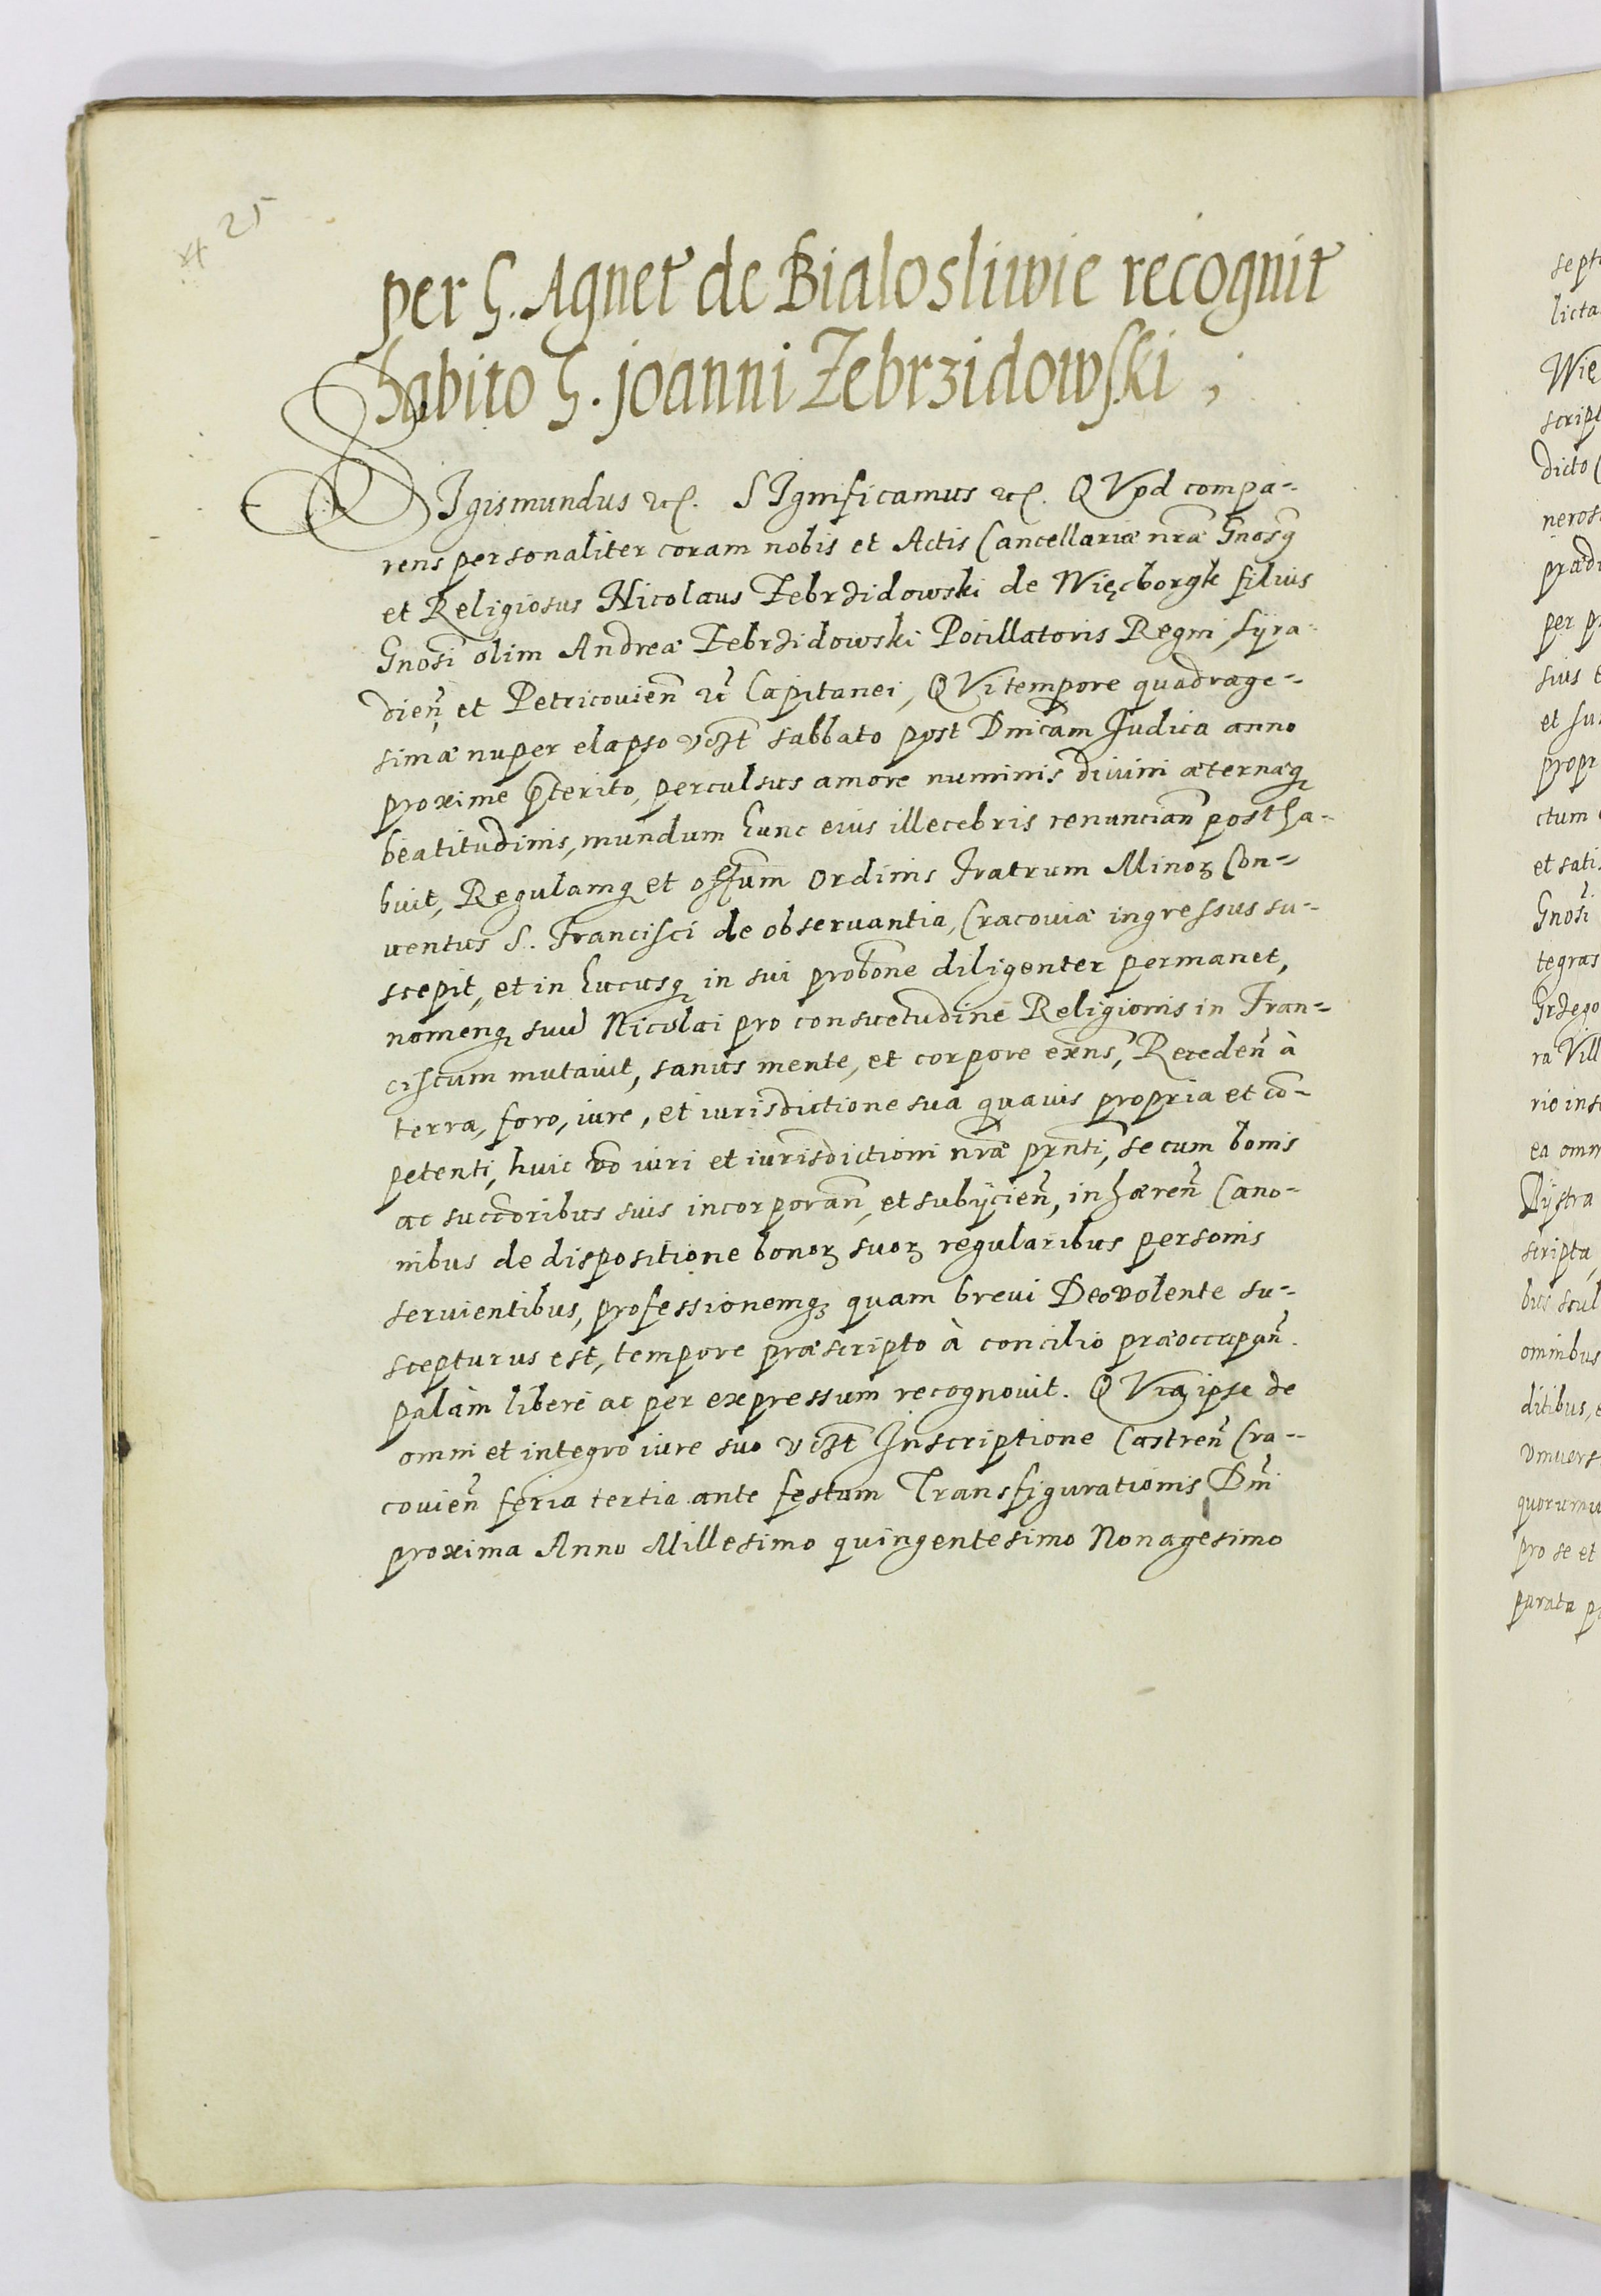 25
per G. Agnet de Bialosliwie recognit
habito G. Joanni Zebrzidowski,
SIgismundus etc. SIgnificamus etc. QVod compa-
rens personaliter coram nobis et Actis Cancellariæ nr̃æ Gnosq̃
et Religiosus Nicolaus Zebrzidowski de Więcborgk filius
Gnosi olim Andreæ Zebrzidowski Pocillatoris Regni, syra-
dien̄ et Petricouien̄ etc Capitanei, QVi tempore quadrage-
simæ nuper elapso vꝫt sabbato post Dnicam Judica anno
proxime p̃terito, perculsus amore numinis diuini æternæq
beatitudinis, mundum hunc eius illecebris renuncian̄ postha-
buit, Regulamq et offum Ordinis Fratrum Minoꝝ Con-
uentus S. Francisci de obseruantia, Cracouiæ ingressus su-
scepit, et in hucusq in sui probone diligenter permanet,
nomenq suũ Nicolai pro consuetudine Religionis in Fran-
ciscum mutauit, sanus mente, et corpore exñs, Receden̄ à
terra, foro, iure, et iurisdictione sua quauis propria et cõ-
petenti, huic v̄o iuri et iurisdictioni nr̃æ pr̃nti, se cum bonis
ac succoribus suis incorporan̄, et subÿcien̄, inhæren̄ Cano-
nibus de dispositione bonoꝝ suoꝝ regularibus personis
seruientibus, professionemq quam breui Deo volente su-
scepturus est, tempore præscripto à concilio præoccupan̄.
palàm liberè ac per expressum recognouit. QVia ipse de
omni et integro iure suo vꝫt Inscriptione Castren̄ Cra-
couien̄ feria tertia ante festum Transfigurationis Dn̄i
proxima Anno Millesimo quingentesimo Nonagesimo
septi
licta
Wię
script
dicto
neros
prædi
per pr
suis e
et su
propr
ctum
et satis
Gnosi
tegras
Grzego
ra Vill
rio ins
ea omn
Bystra
scripta,
bus scul
omnibus
ditibus, e
vniuers
quorumu
pro se et
parata p